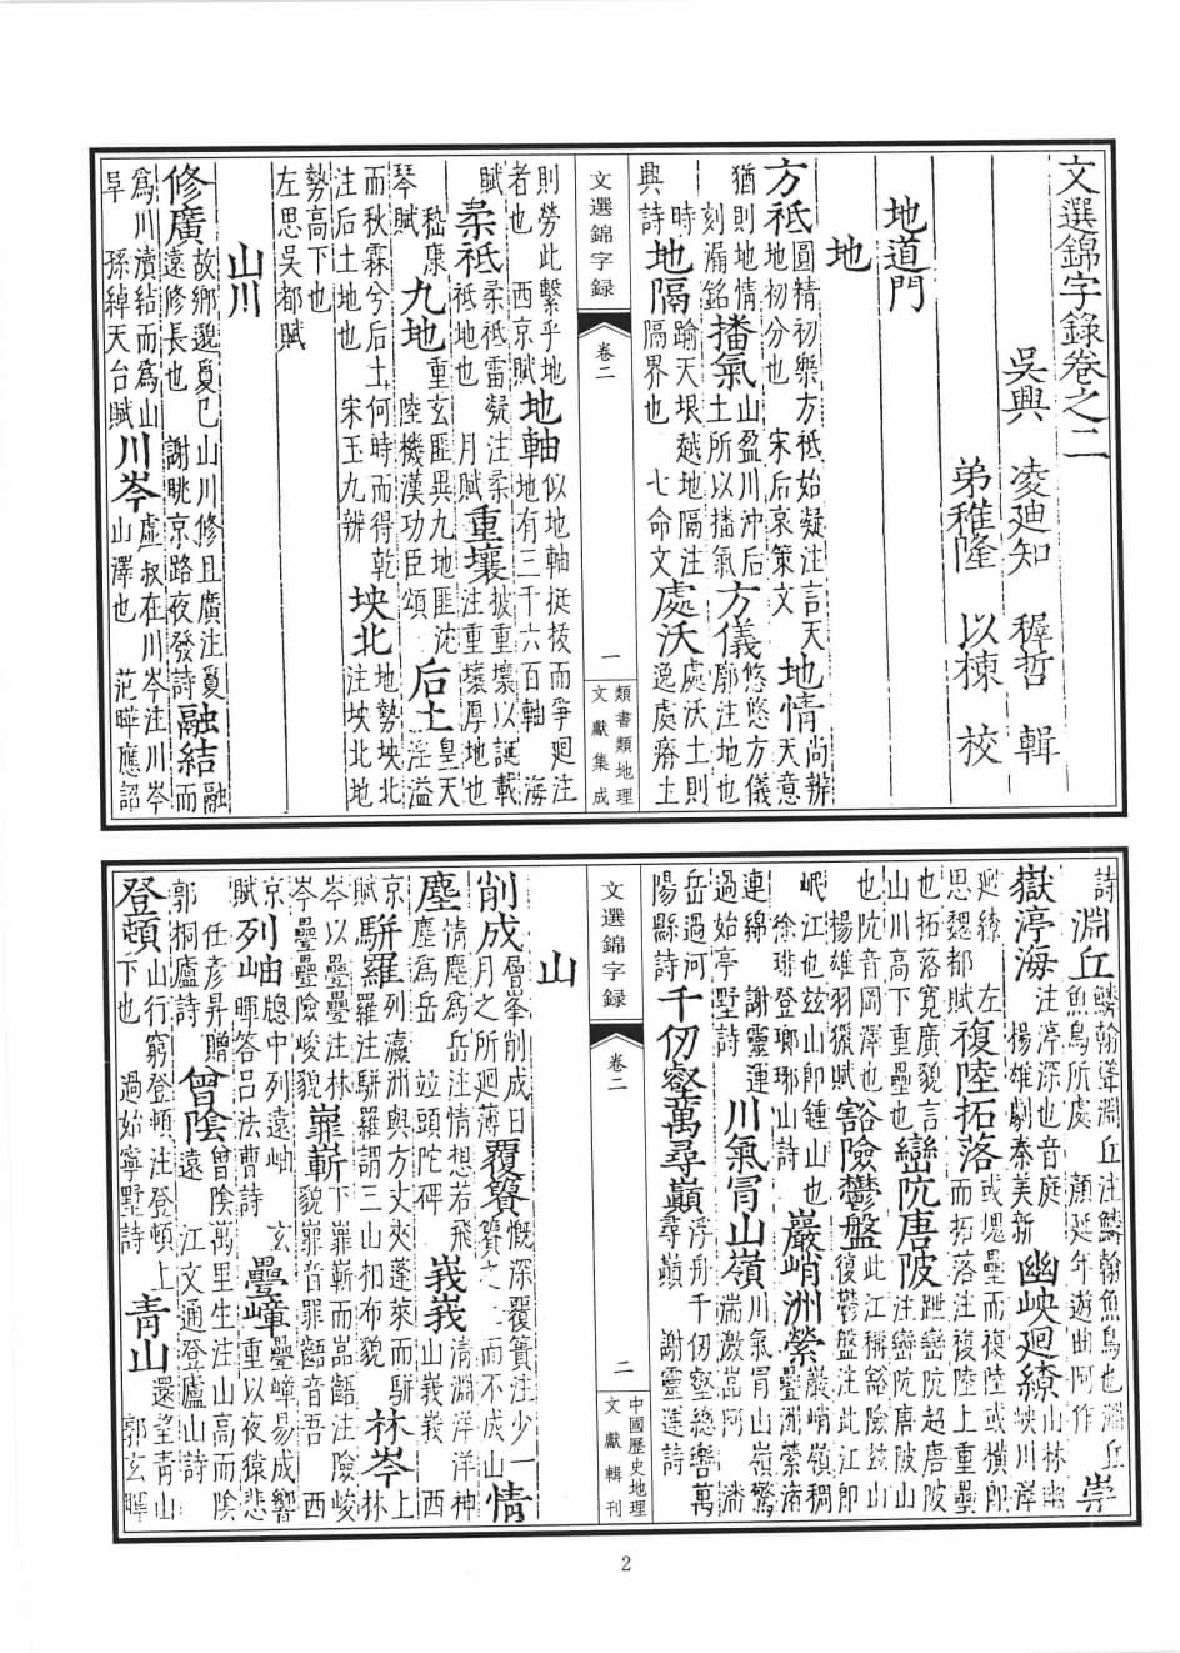 文選錦字錄卷之二
吳興 凌廸知 穉哲 輯
弟稚隆 以棟 校
地道門
地
方祗圓精初爍方祗始凝注言天
地初分也 宋后哀策文 地情尚辨
天意
猶則地情
刻漏銘 播氣山盈川沖后
土所以播氣 方儀悠悠方儀
廓注地也
時
興詩 地隔踰天垠越地隔注
隔界也 七命文 處沃處沃土則
逸處瘠土
文選錦字録
卷二
一
類書類地理
文獻集成
則勞此繫乎地
者也 西京賦 地軸似地軸挺拔而爭廻注
地有三千六百軸 海
賦 柔祗柔祗雪凝注柔
祗地也 月賦 重壤披重壤以誕載
注重壤厚地也
嵇康
琴賦 九地重玄匪奧九地匪沈
陸機漢功臣頌 后土皇天
淫溢
而秋霖兮后土何時而得乾
注后土地也 宋玉九辨 坱圠地勢坱圠
注坱圠地
勢高下也
左思吳都賦
山川
修廣故鄉邈夐已山川修且廣注夐
遠修長也 謝眺京路夜發詩 融結融
而
爲川瀆結而爲山
孫綽天台賦 川岑虛叔在川岑注川岑
山澤也 范曄應詔
詩 淵丘鱗翰聳淵丘注鱗翰魚鳥也淵丘
魚鳥所處 顏延年遊曲阿作 崇
嶽渟海注渟深也音庭
揚雄劇秦美新 幽岟廻繚山林幽
岟川澤
廻繚 左
思魏都賦 複陸拓落或嵬壘而複陸或橫朗
而拓落注複陸上重壘
也拓落寬廣貌言
山川高下重壘也 巒阬唐陂跇巒阬超唐陂
注巒阬唐陂山
也阬音岡澤也
揚雄羽獵賦 豁險鬱盤此江稱豁險茲山
復鬱盤注此江即
岷江也茲山即鍾山也
徐琲登瑯琊山詩 巖峭洲縈巖峭嶺稠
疊洲縈渚
連綿 謝靈運
過始亭墅詩 川氣冐山嶺川氣冐山嶺驚
湍激嵓阿 潘
岳過河
陽縣詩 千仞壑萬尋巔浮舟千仞壑總轡萬
尋巔 謝靈運詩
文選錦字録
卷二
二
中國歷史地理
文獻輯刊
山
削成層峯削成日
月之所廻薄 覆簣慨深覆簣注少一
簣之土而不成山 情
塵情塵爲岳注情想若飛
塵爲岳 竝頭陀碑 峩峩清淵洋洋神
山峩峩 西
京
賦 駢羅列瀛洲與方丈夾蓬萊而駢
羅注駢羅謂三山扣布貌 林岑上林
岑以壘壘注林
岑壘壘險峻貌 嶊嶄下嶊嶄而嵓齬注險峻
貌嶊音罪齬音吾 西
京
賦 列岫牕中列遠岫 玄
暉答呂法曹詩 疊嶂疊嶂易成響
重以夜猿悲
任彥昇贈
郭桐廬詩 曾陰曾陰萬里生注山高而陰
遠 江文通登廬山詩
登頓山行窮登頓注登頓上
下也 過始寧墅詩 青山還望青山
郭玄暉
2